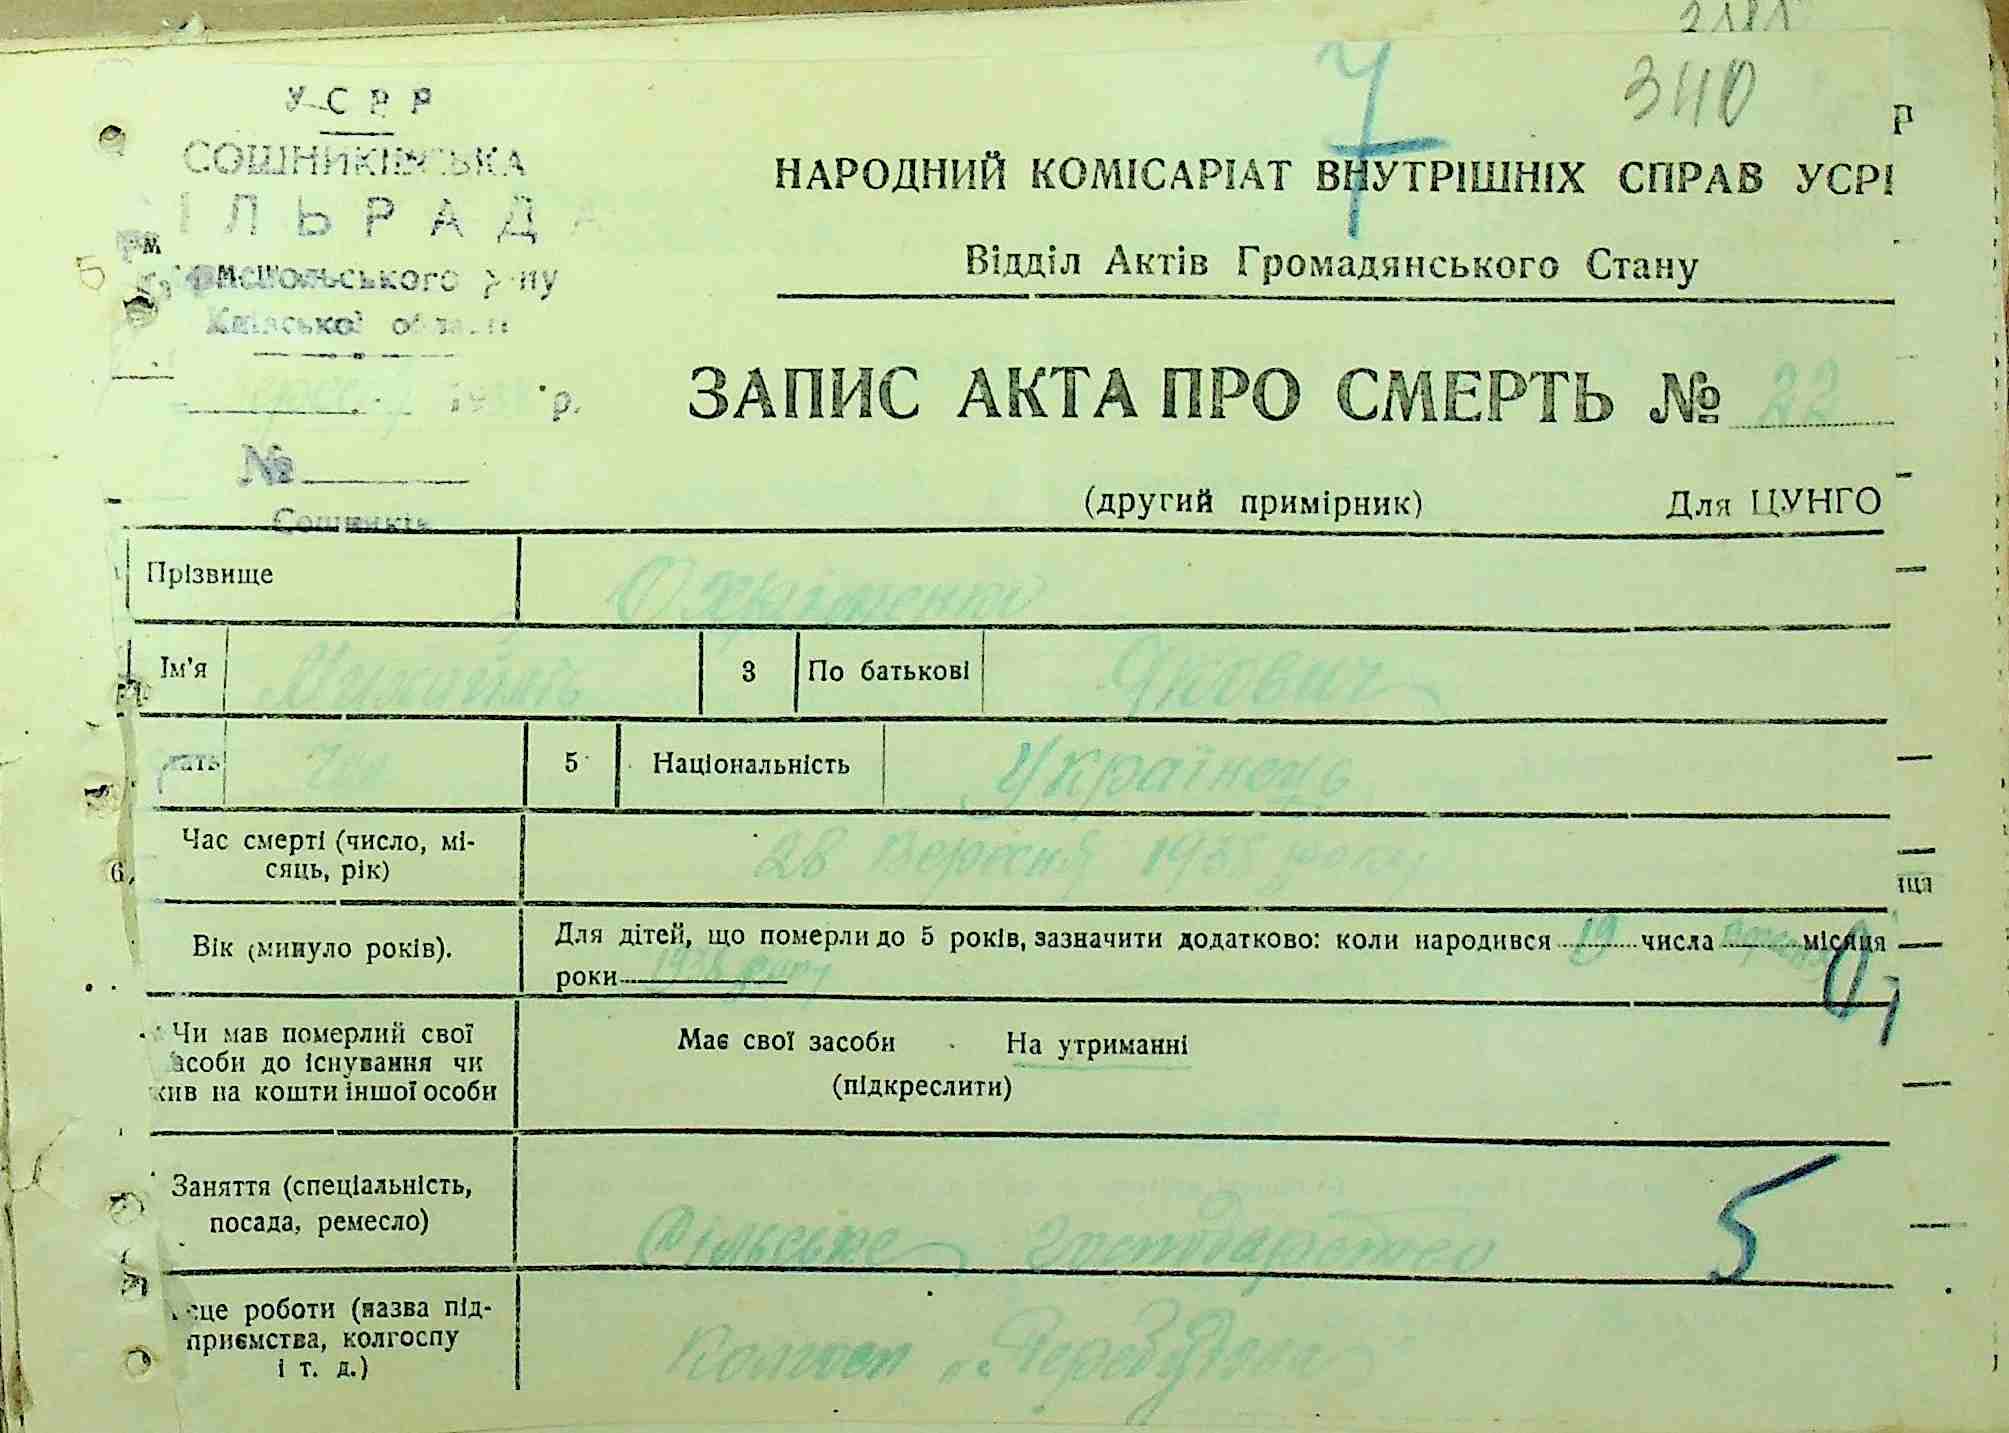 340
7
УСРР
СОШНИКІВСЬКА
ІЛЬРАДА
Київської
193 р.
№
Сошників
НАРОДНИЙ КОМІСАРІАТ ВНУТРІШНІХ СПРАВ УСРР
Відділ Актів Громадянського Стану
ЗАПИС АКТА ПРО СМЕРТЬ № 22
(другий примірник) Для ЦУНГО
Прізвище Охріменко
Ім'я Михайло 3 По батькові Якович
Чол 5 Національність Українець
Час смерті (число, мі-
сяць, рік) 28 Вересня 1935 року
6.
Вік (минуло років). Для дітей, що померли до 5 років, зазначити додатково: коли народився 19 числа місяця
роки
0,
Чи мав померлий свої
асоби до існування чи
жив на кошти іншої особи
Має свої засоби На утриманні
(підкреслити)
Заняття (спеціальність,
посада, ремесло) Сільське господарство
5
це роботи (назва під-
приємства, колгоспу
і т. д.) Колгосп